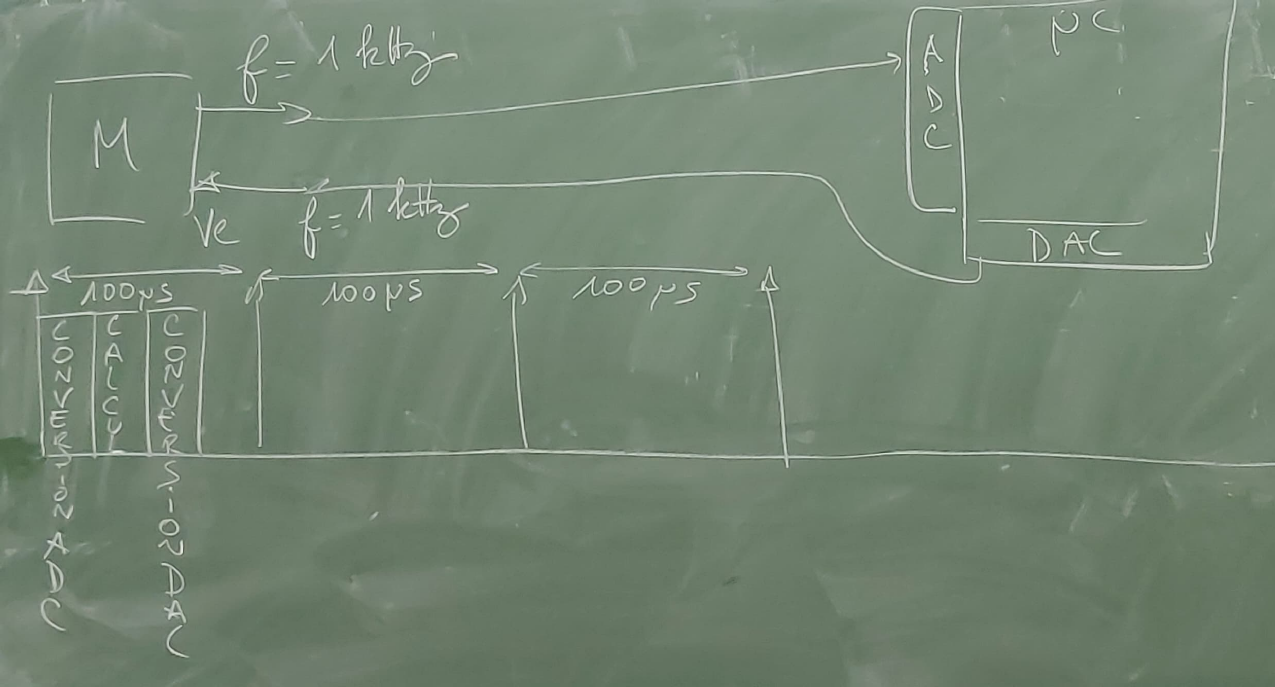 f = 1 kHz
M
ADC
µC
Ve
f = 1 kHz
DAC
100 µs
100 µs
100 µs
CONVERSION ADC
CALCU
CONVERSION DAC